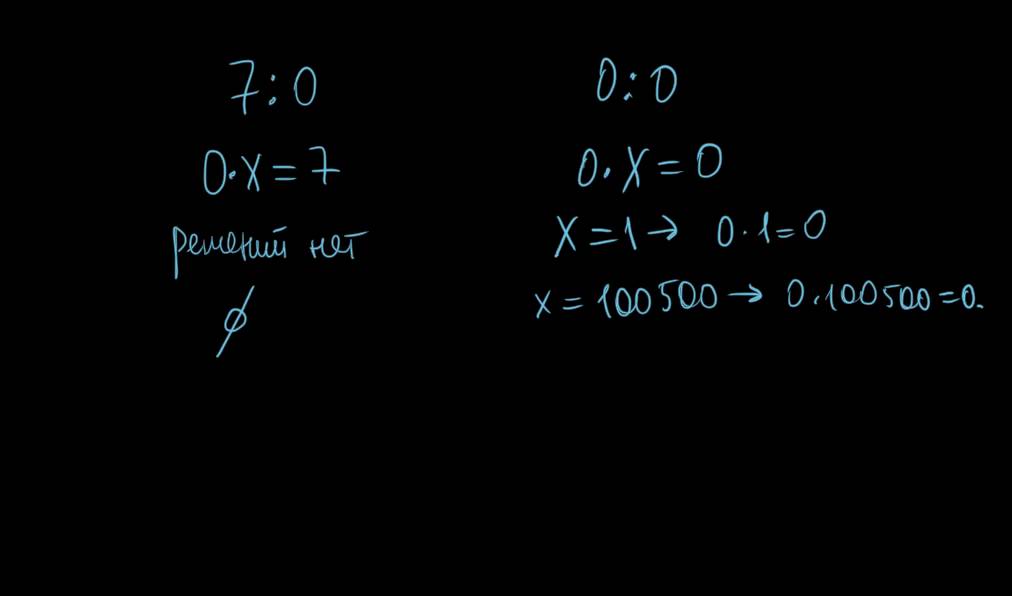 7:0
0·x=7
решений нет
∅
0:0
0·x=0
x=1→ 0·1=0
x=100500→ 0·100500=0.